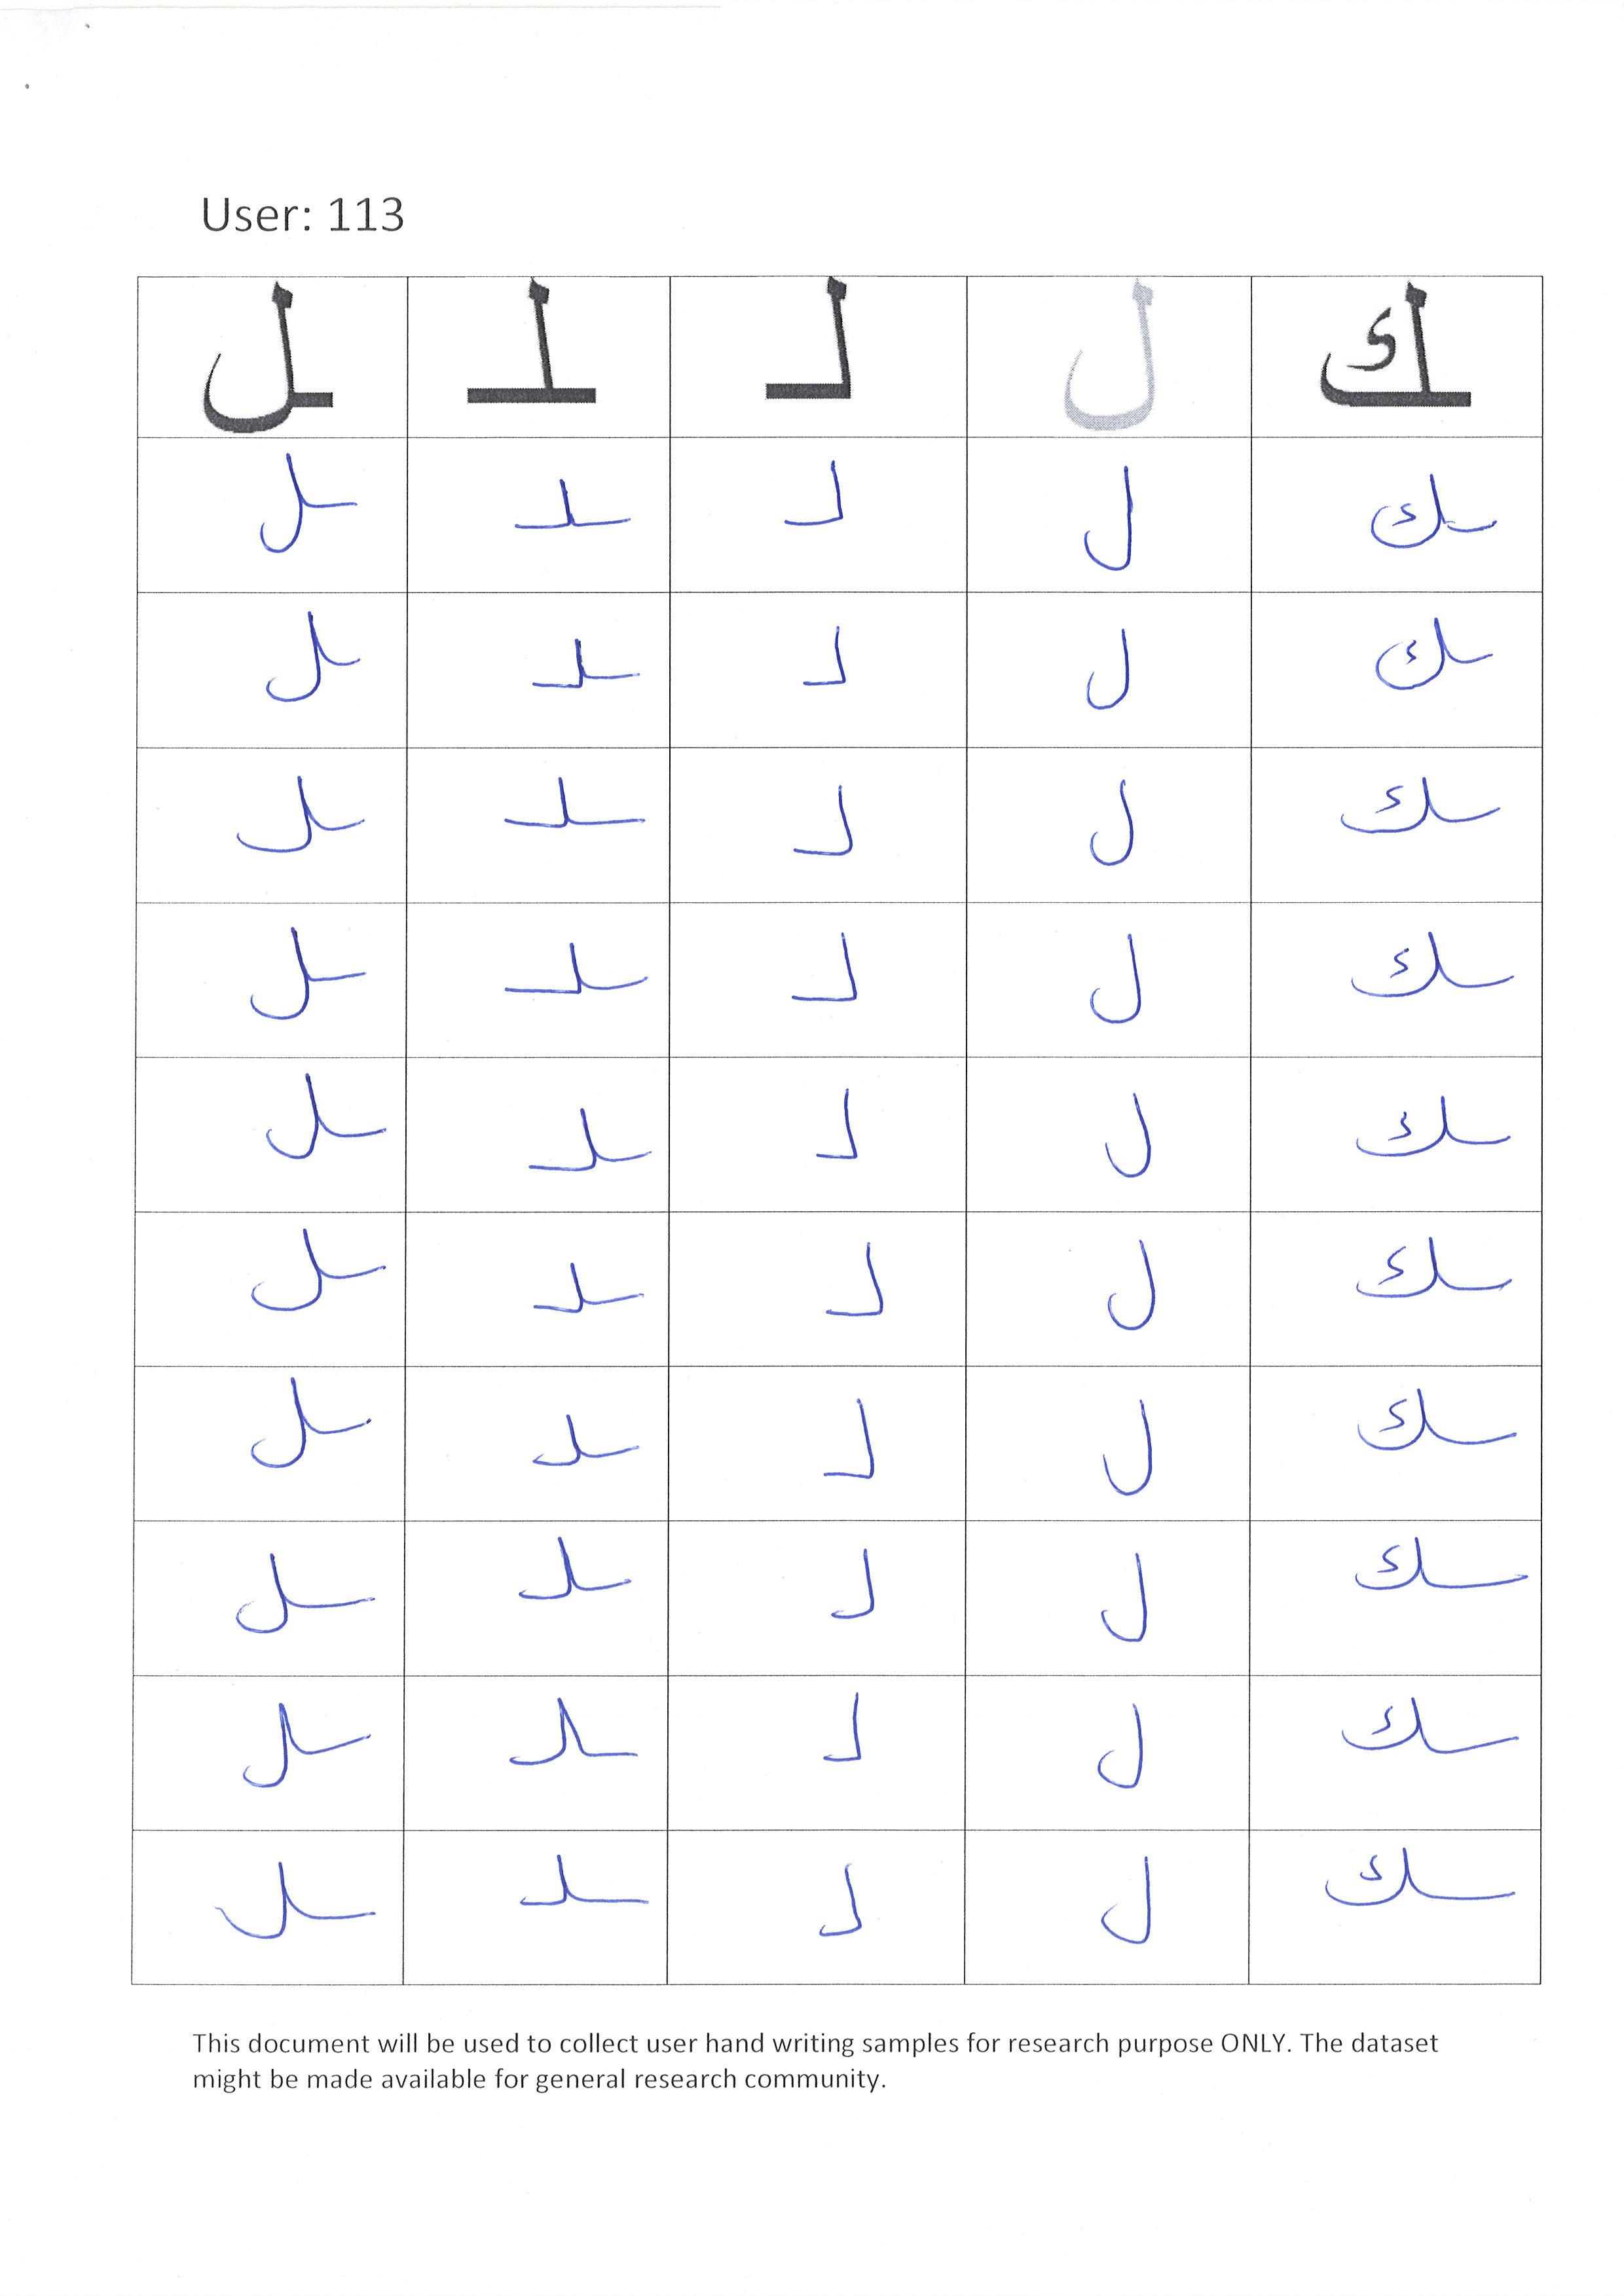 User: 113
ـك ل لـ ـلـ ـل
ـك ل لـ ـلـ ـل
ـك ل لـ ـلـ ـل
ـك ل لـ ـلـ ـل
ـك ل لـ ـلـ ـل
ـك ل لـ ـلـ ـل
ـك ل لـ ـلـ ـل
ـك ل لـ ـلـ ـل
ـك ل لـ ـلـ ـل
ـك ل لـ ـلـ ـل
ـك ل لـ ـلـ ـل
This document will be used to collect user hand writing samples for research purpose ONLY. The dataset
might be made available for general research community.